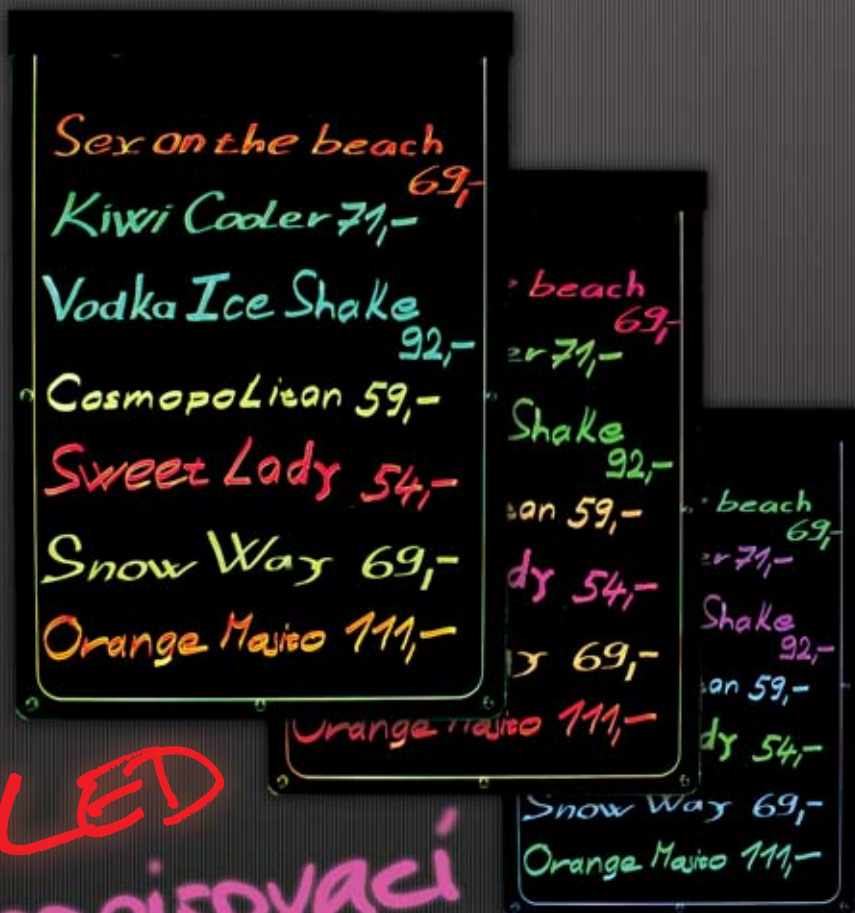 Sex on the beach
69,-
Kiwi Cooler 71,-
Vodka Ice Shake
92,-
Cosmopolitan 59,-
Sweet Lady 54,-
Snow Way 69,-
Orange Mojito 111,-
beach
69,-
71,-
Shake
92,-
59,-
54,-
69,-
Orange Mojito 111,-
beach
69,-
71,-
Shake
92,-
59,-
54,-
Snow Way 69,-
Orange Mojito 111,-
LED